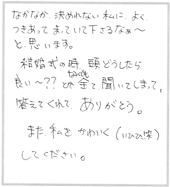 なかなか 決めれない 私に、よく
つきあって まっていて下さるなぁ〜
と、思います。
結婚式の時 頭どうしたら
良い〜?? とか 全て 聞いてしまって、
答えてくれて、ありがとう。
また 私を かわいく
してください。